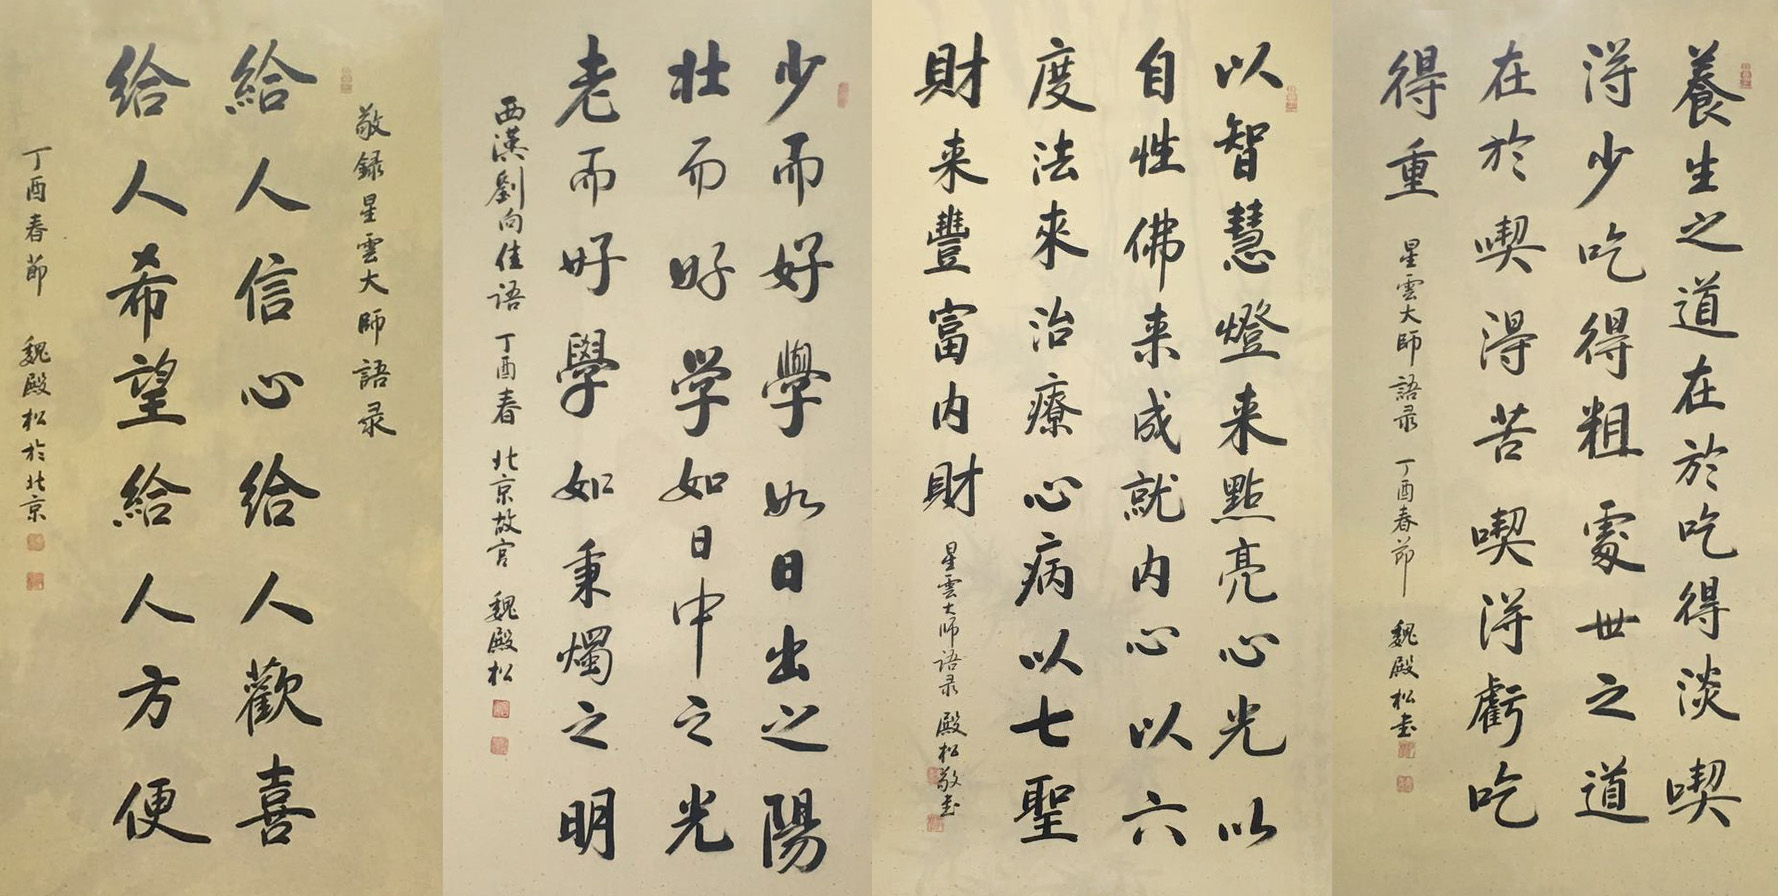 養生之道在於吃得淡喫
淂少吃得粗處世之道
在於喫淂苦喫淂虧吃
得重
星雲大師語录 丁酉春節 魏殿松書
以智慧燈来點亮心光以
自性佛来成就内心以六
度法來治療心病以七聖
財来豐富内財
星雲大师语录 殿松敬書
少而好學如日出之陽
壮而好学如日中之光
老而好學如秉燭之明
西漢劉向佳语 丁酉春 北京故宫 魏殿松
敬録星雲大師語录
給人信心给人歡喜
给人希望給人方便
丁酉春節 魏殿松於北京